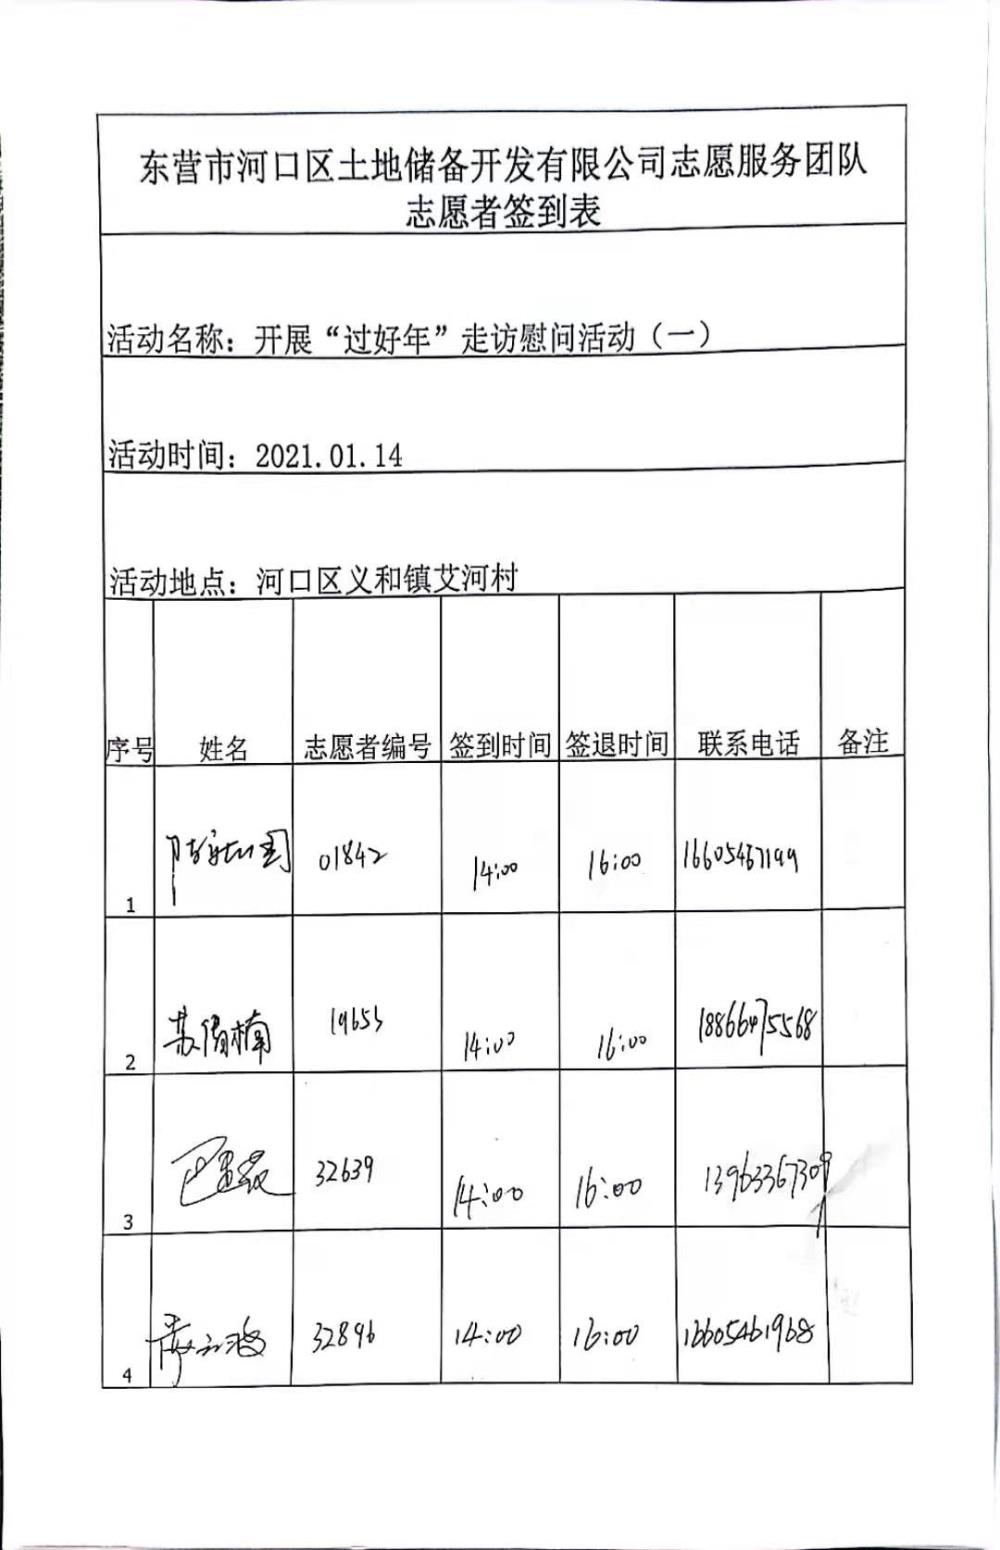 东营市河口区土地储备开发有限公司志愿服务团队
志愿者签到表
活动名称：开展“过好年”走访慰问活动（一）
活动时间：2021.01.14
活动地点：河口区义和镇艾河村
序号 姓名 志愿者编号 签到时间 签退时间 联系电话 备注
1 01842 14:00 16:00 16605467199
2 苏倩楠 19653 14:00 16:00 18866475568
3 32639 14:00 16:00 13963367309
4 32896 14:00 16:00 16605461968